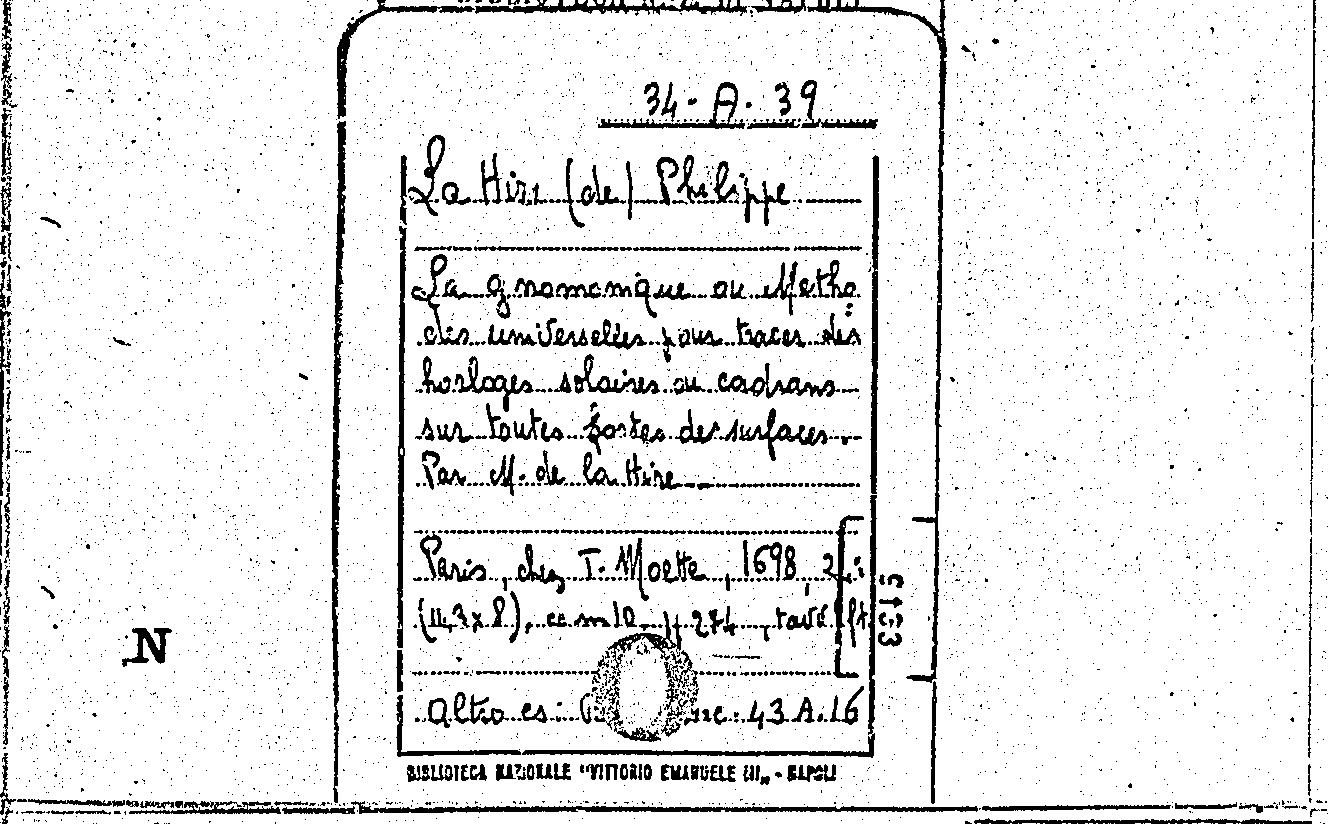 34-A-39
La Hire (de) Philippe
La gnomonique ou Metho
des universelles pour tracer des
horloges solaires ou cadrans
sur toutes sortes de surfaces.
Par M. de la Hire
Paris, chez T. Moette, 1698,
(14,3x8), cc m 10, pp 274, tavv
5133
N
Altro es: 43 A.16
BIBLIOTECA NAZIONALE "VITTORIO EMANUELE III„ - NAPOLI